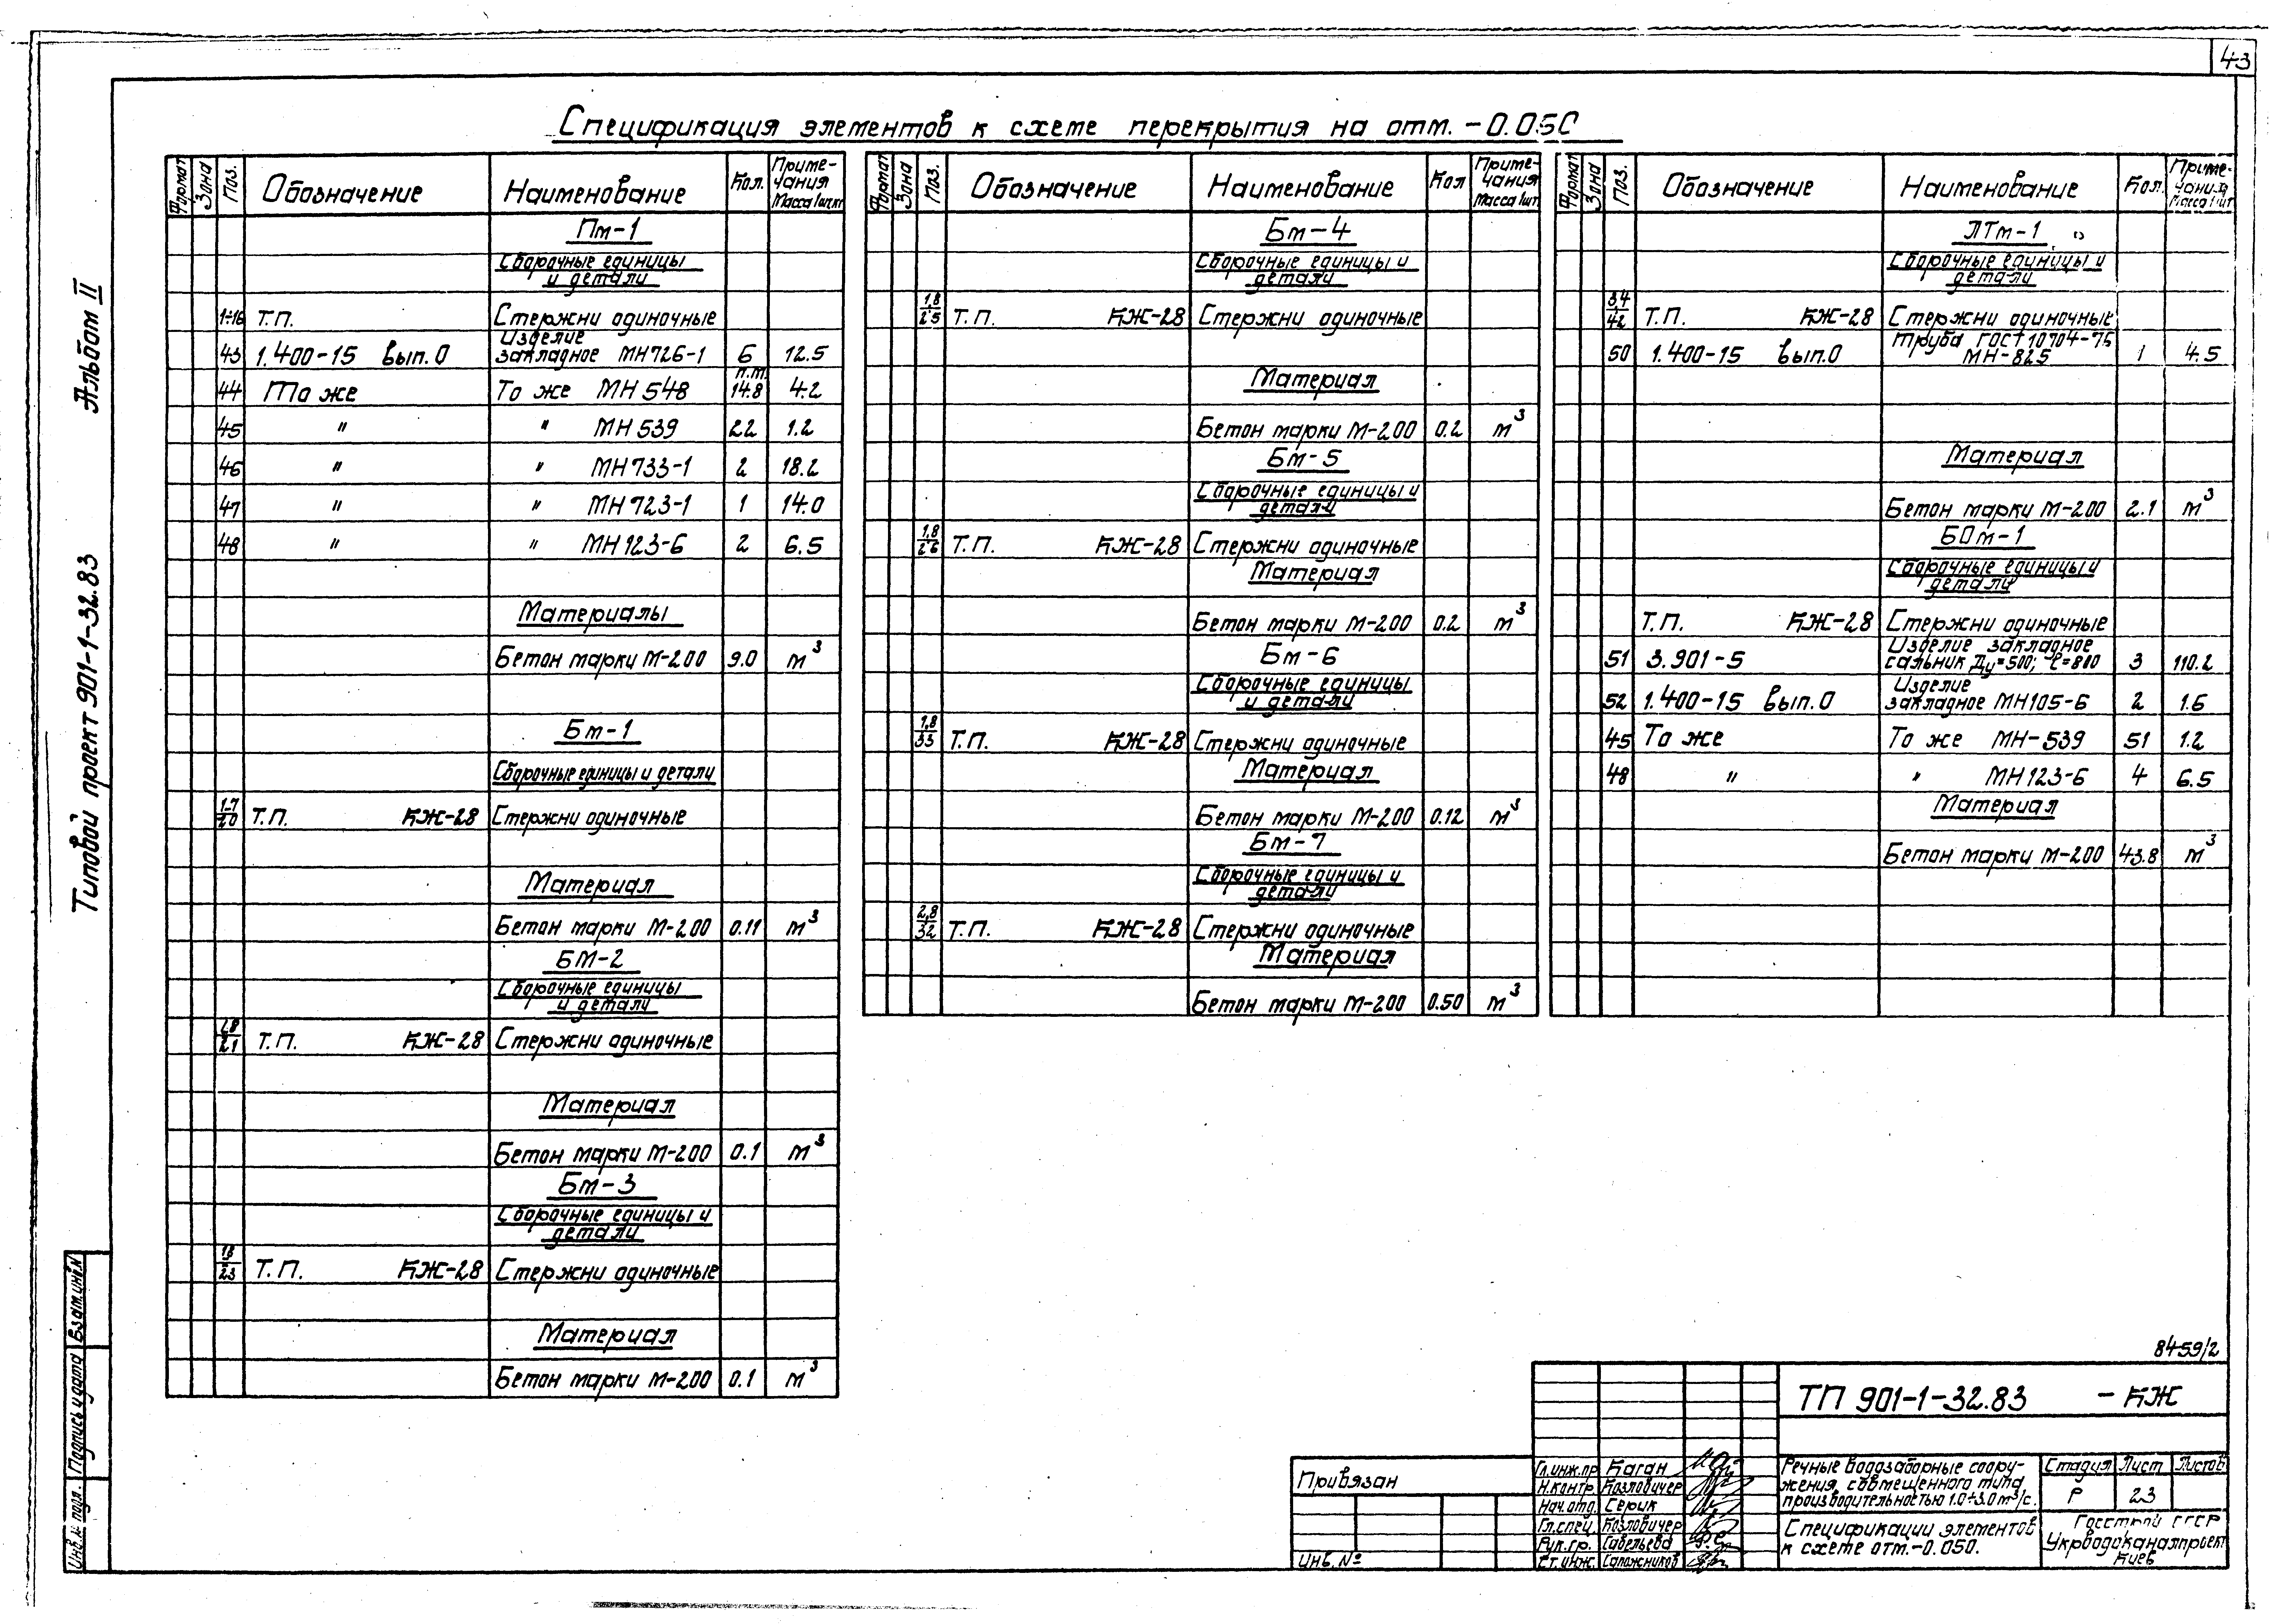 43
Спецификация элементов к схеме перекрытия на отм. -0.050
Альбом II
Типовой проект 901-1-32.83
Формат Зона Поз. Обозначение Наименование Кол. Приме-чания Масса 1шт.кг
Пм-1
Сборочные единицы
и детали
1÷16 Т.П. Стержни одиночные
43 1.400-15 вып.0 Изделие закладное МН726-1 6 12.5
44 То же То же МН 548 п.м. 14.8 4.2
45 " " МН 539 22 1.2
46 " " МН 733-1 2 18.2
47 " " МН 723-1 1 14.0
48 " " МН 123-6 2 6.5
Материалы
Бетон марки М-200 9.0 м³
Бм-1
Сборочные единицы и детали
1-7/20 Т.П. КЖ-28 Стержни одиночные
Материал
Бетон марки М-200 0.11 м³
БМ-2
Сборочные единицы
и детали
1,8/21 Т.П. КЖ-28 Стержни одиночные
Материал
Бетон марки М-200 0.1 м³
Бм-3
Сборочные единицы и
детали
18/23 Т.П. КЖ-28 Стержни одиночные
Материал
Бетон марки М-200 0.1 м³
Формат Зона Поз. Обозначение Наименование Кол Приме-чания Масса 1шт.
Бм-4
Сборочные единицы и
детали
1,8/25 Т.П. КЖ-28 Стержни одиночные
Материал
Бетон марки М-200 0.2 м³
Бм-5
Сборочные единицы и
детали
1,8/26 Т.П. КЖ-28 Стержни одиночные
Материал
Бетон марки М-200 0.2 м³
Бм-6
Сборочные единицы
и детали
1,8/33 Т.П. КЖ-28 Стержни одиночные
Материал
Бетон марки М-200 0.12 м³
Бм-7
Сборочные единицы и
детали
2,8/32 Т.П. КЖ-28 Стержни одиночные
Материал
Бетон марки М-200 0.50 м³
Формат Зона Поз. Обозначение Наименование Кол. Приме-чания Масса 1шт
ПТм-1
Сборочные единицы и
детали
34/42 Т.П. КЖ-28 Стержни одиночные
50 1.400-15 вып.0 Труба ГОСТ 10704-76 МН-825 1 4.5
Материал
Бетон марки М-200 2.1 м³
БОм-1
Сборочные единицы и
детали
Т.П. КЖ-28 Стержни одиночные
51 3.901-5 Изделие закладное сальник Ду=500; ℓ=800 3 110.2
52 1.400-15 вып.0 Изделие закладное МН105-6 2 1.6
45 То же То же МН-539 51 1.2
48 " " МН123-6 4 6.5
Материал
Бетон марки М-200 43.8 м³
8459/2
ТП 901-1-32.83 -КЖ
Привязан
Инв. №
Гл.инж.пр Каган
Н.контр. Козловичер
Нач.отд. Серик
Гл.спец. Козловичер
Рук.гр. Савельева
Ст.инж. Сапожников
Речные водозаборные соору-
жения, совмещенного типа,
производительностью 1.0÷3.0 м³/с.
Стадия Лист Листов
Р 23
Спецификации элементов
к схеме отм.-0.050.
Госстрой СССР
Укрводоканалпроект
Киев
Инв.№ подл. Подпись и дата Взам.инв.№